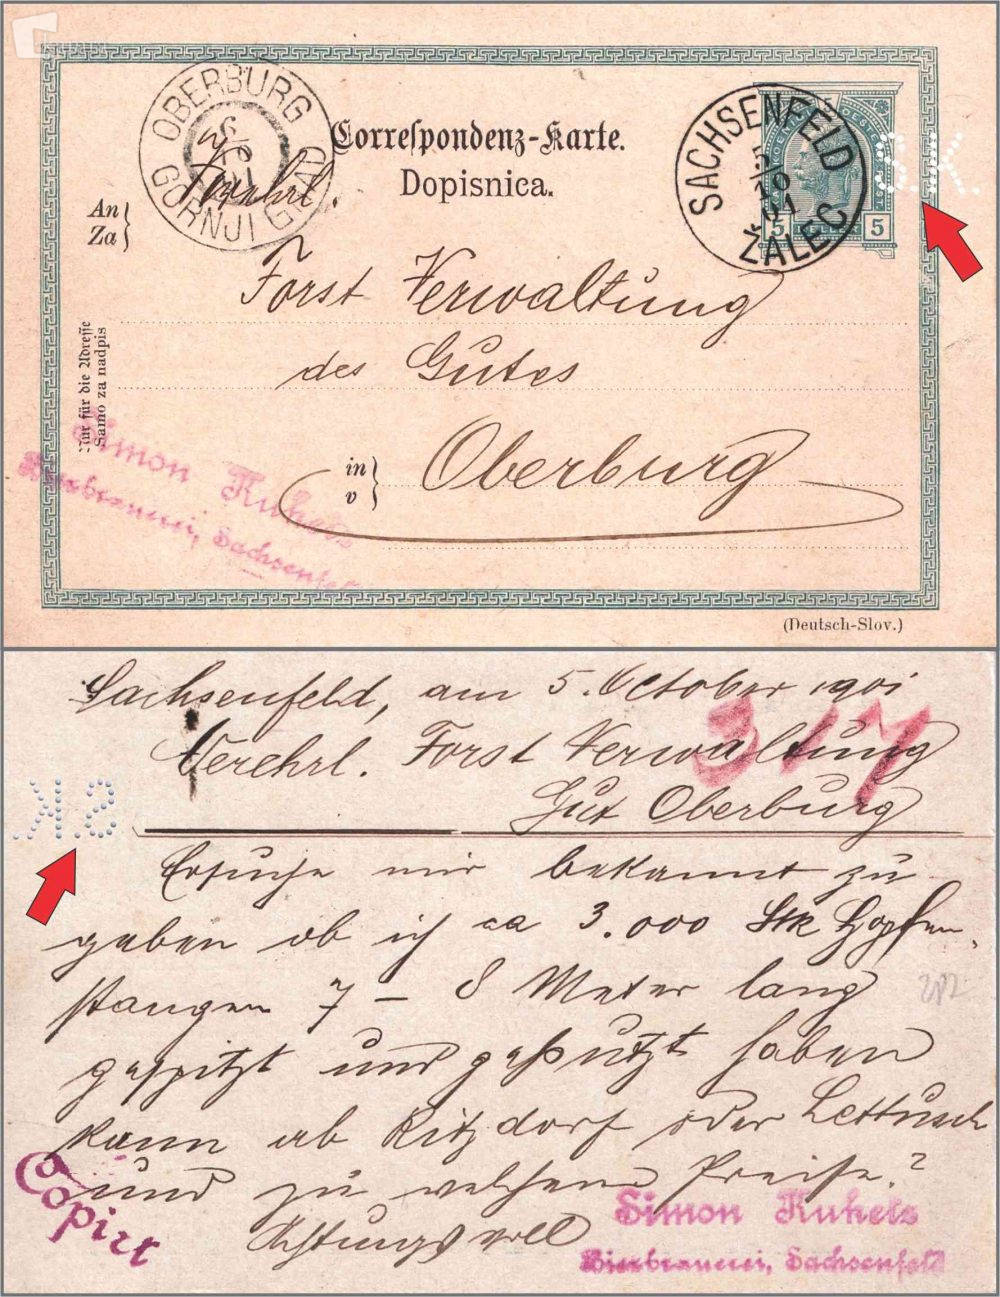 OBERBURG
GORNJI GRAD
Correspondenz-Karte.
Dopisnica.
SACHSENFELD
5/10
01
ŽALEC
5 5
HELLER
S.K.
An
Za
Forst Verwaltung
des Gutes
Nur für die Adresse
Samo za nadpis
in
v
Oberburg
Simon Kukets
Bierbrauerei, Sachsenfeld
(Deutsch-Slov.)
Sachsenfeld, am 5. October 1901
317
Verehrl. Forst Verwaltung
Gut Oberburg
S.K.
Ersuche mir bekannt zu
geben ob ich ca 3.000 Stk Hopfen-
stangen 7 – 8 Meter lang
gespitzt und geputzt haben
kann ab Ritzdorf oder Lettusch
und zu welchem Preise?
Achtungsvoll
Copirt
Simon Kukets
Bierbrauerei, Sachsenfeld